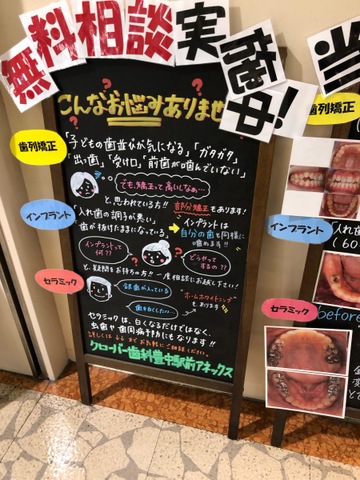 無料相談実歯中!
当
こんなお悩みありませ
歯列矯正
「子どもの歯並びが気になる」「ガタガタ」
「出っ歯」「受け口」「前歯が噛んでいない」
でも矯正って高いしなぁ…
と思われている方!! 部分矯正もあります!
インプラント
「入れ歯の調子が悪い」
歯が抜けたままになっている、
インプラントは
自分の歯と同様に
噛めます!!
インプラントって
何??
どうやって
するの??
と、疑問をお持ちの方!! 一度相談にお越し下さい!
セラミック
銀歯が入っている
歯を白くしたい…
"ホームホワイトニング"
もあります
セラミックは、白くなるだけではなく、
虫歯や歯周病予防にもなります!!
詳しくは
お気軽にご相談ください。
クローバー歯科豊中駅前アネックス
歯列矯正
インプラント
入れ歯
(60
セラミック
before